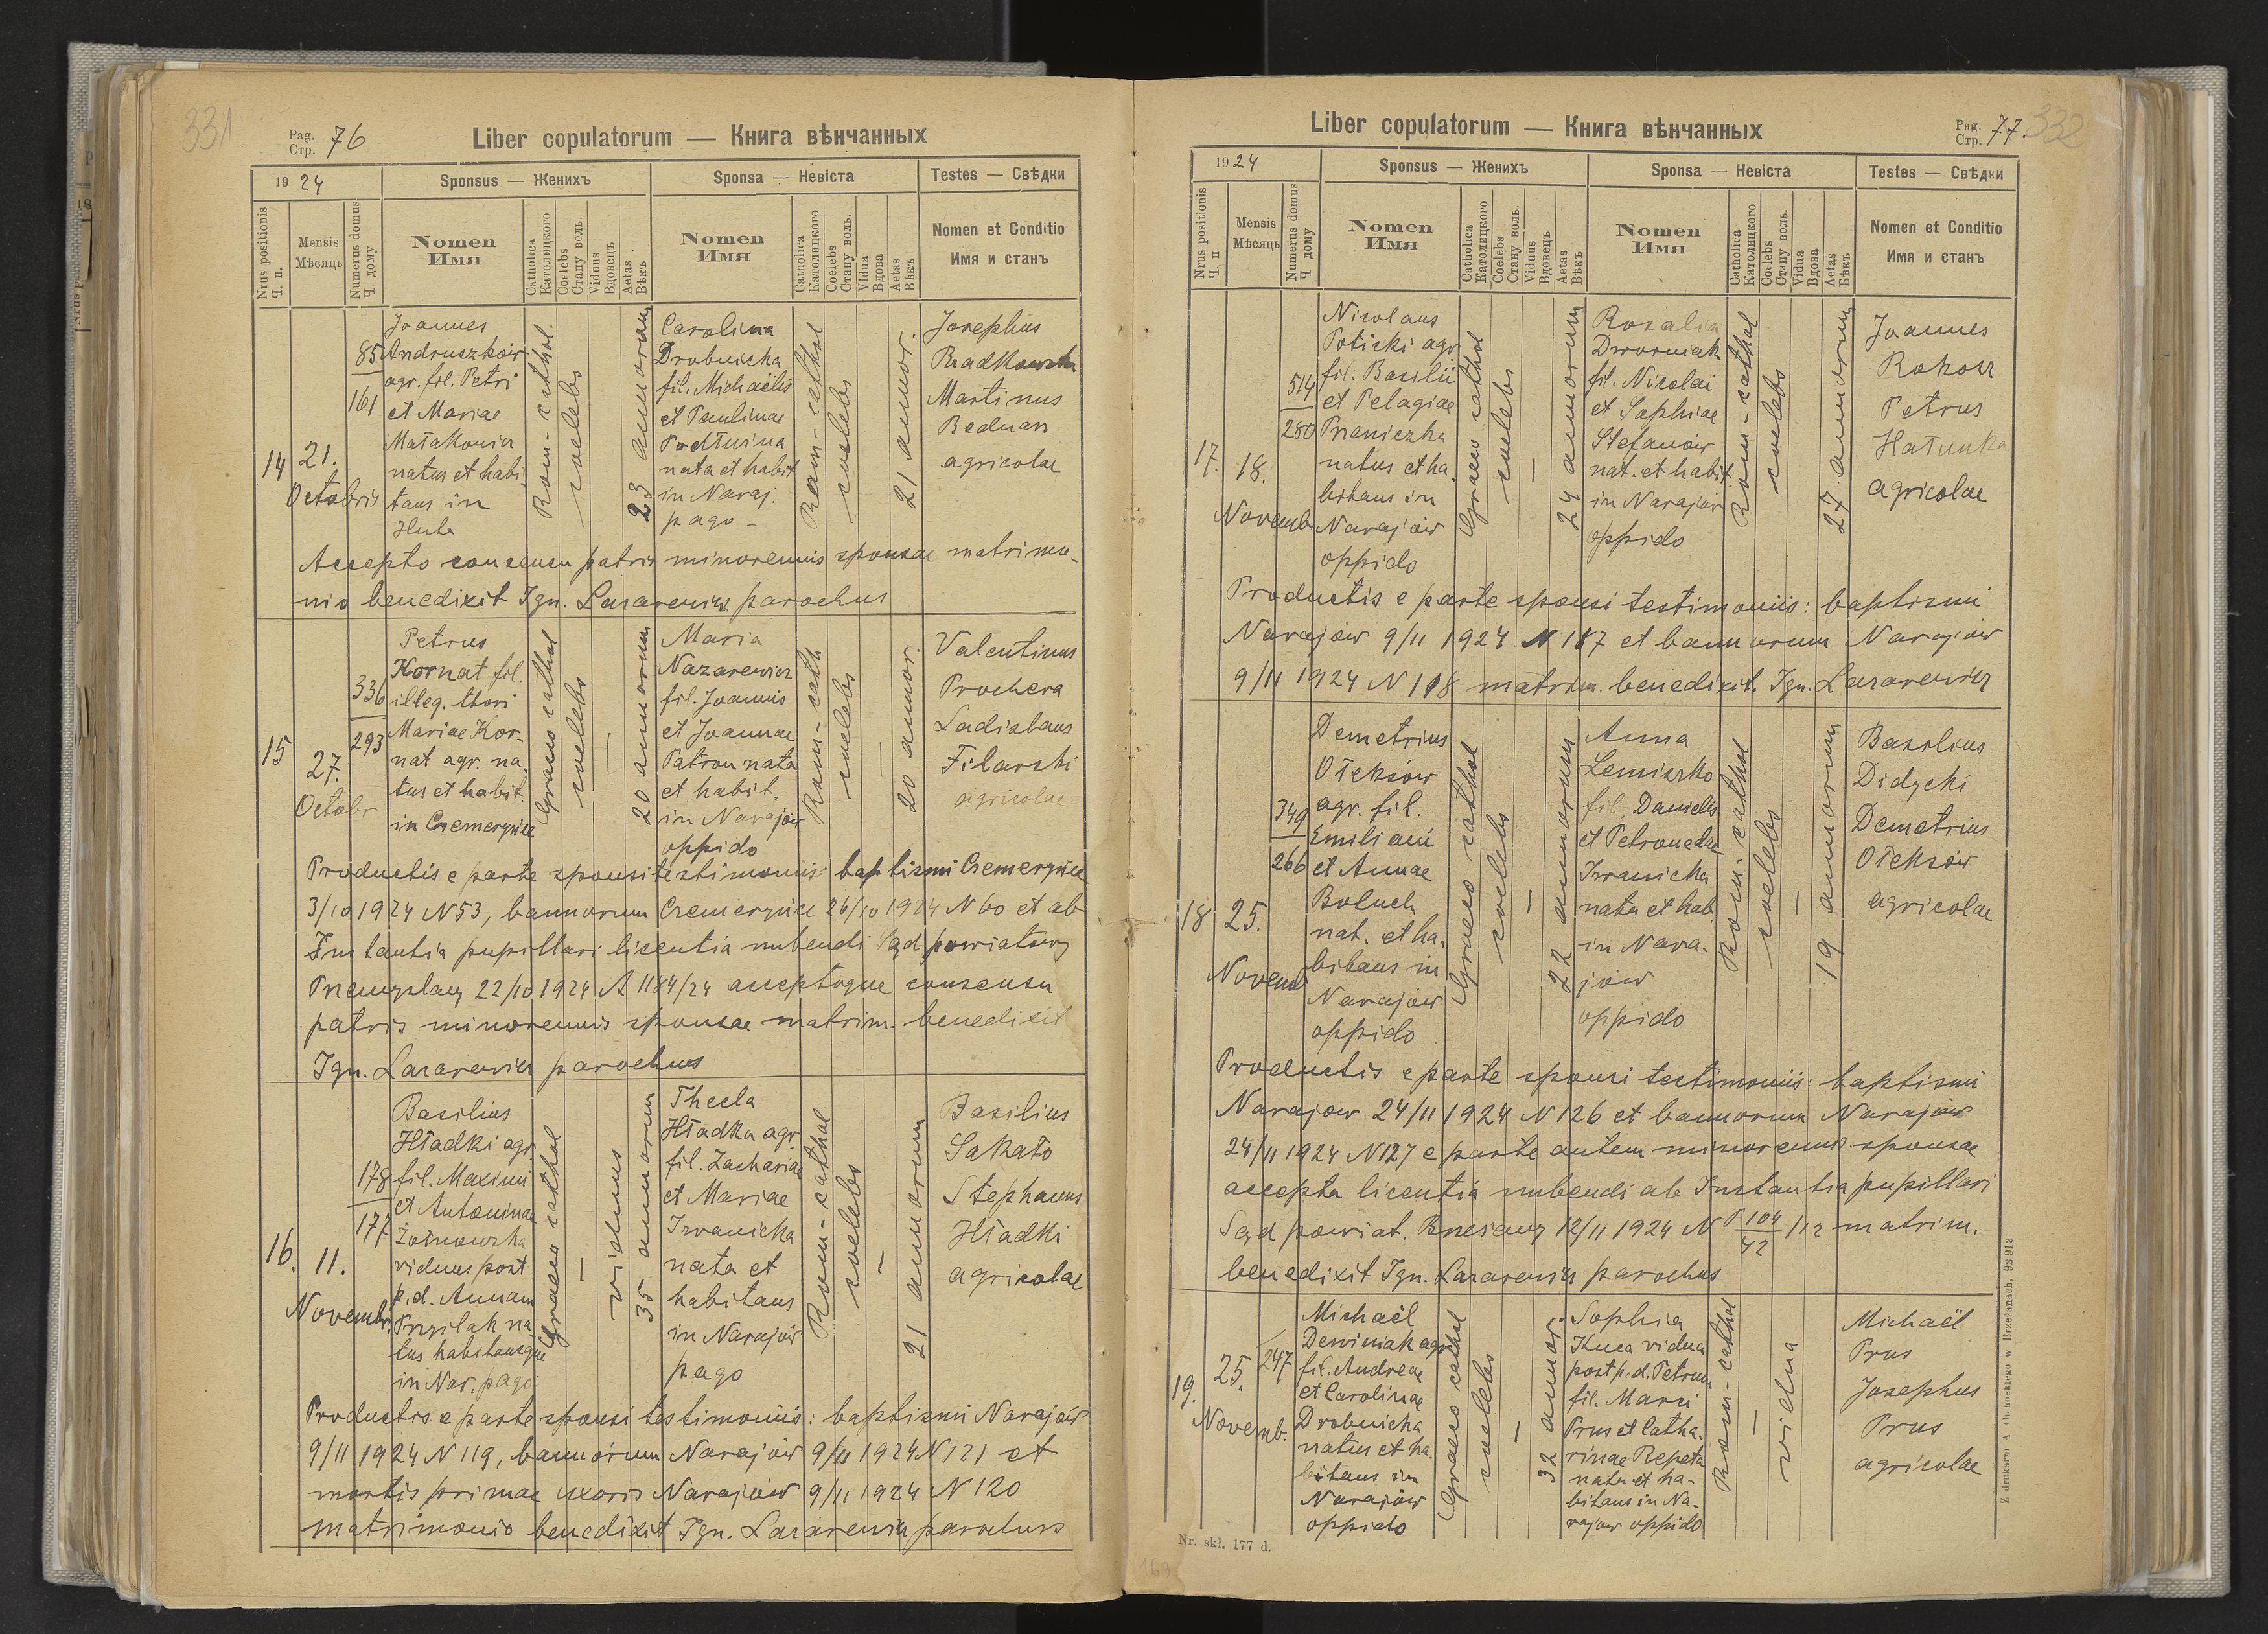 331
Pag.
Стр. 76
Liber copulatorum — Книга вѣнчанных
19 24
Sponsus — Женихъ
Sponsa — Невіста
Testes — Свѣдки
Nrus positionis
Ч. п.
Mensis
Мѣсяць
Numerus domus
Ч. дому
Nomen
Имя
Catholica
Католицкого
Coelebs
Стану воль.
Viduus
Вдовецъ
Aetas
Вѣкъ
Nomen
Имя
Catholica
Католицкого
Coelebs
Стану воль.
Vidua
Вдова
Aetas
Вѣкъ
Nomen et Conditio
Имя и станъ
14
21.
Octobris
85
161
Joannes
Andruszków
agr. fil. Petri
et Mariae
Małkowicz
natus et habi
tans in
Huta
Rom-cathol.
coelebs
23 annorum
Carolina
Drobnicka
fil. Michaëlis
et Paulinae
Podłuina
nata et habit
in Naraj.
pago -
Rom-cathol
coelebs
21 annor.
Josephus
Radkowski
Martinus
Bednarz
agricolae
Accepto consensu patris minorennis sponsae matrimo-
nio benedixit Ign. Lazarewicz parochus
15
27.
Octobr
336
293
Petrus
Kornat fil.
illeg. thori
Mariae Kor-
nat agr. na
tus et habit.
in Ciemierzyńce
Graeco cathol
coelebs
—
20 annorum
Maria
Nazarewicz
fil. Joannis
et Joannae
Patron nata
et habit.
in Narajów
oppido
Rom-cath
coelebs
—
20 annor.
Valentinus
Prochera
Ladislaus
Filarski
agricolae
Productis e parte sponsi testimoniis: baptismi Ciemierzyńce
3/10 1924 N 53, bannorum Ciemierzyńce 26/10 1924 N 60 et ab
Instantia pupillari licentia nubendi Sąd powiatowy
Przemyślany 22/10 1924 A 1184/24 acceptoque consensu
patris minorennis sponsae matrim. benedixit
Ign. Lazarewicz parochus
16.
11.
Novembr.
178
177
Basilius
Hładki agr.
fil. Maximi
et Antoninae
Żołnowska
viduus post
p.d. Annam
Przyslak na
tus habitansque
in Nar. pago
Graeco cathol
—
viduus
35 annorum
Thecla
Hładka agr.
fil. Zachariae
et Mariae
Iwanicka
nata et
habitans
in Narajów
pago
Rom-cathol
coelebs
—
21 annorum
Basilius
Sakato
Stephanus
Hładki
agricolae
Productis e parte sponsi testimoniis: baptismi Narajów
9/11 1924 N 119, bannorum Narajów 9/11 1924 N 121 et
mortis primae uxoris Narajów 9/11 1924 N 120
matrimonio benedixit Ign. Lazarewicz parochus
Liber copulatorum — Книга вѣнчанных
Pag.
Стр. 77.
332
19 24
Sponsus — Женихъ
Sponsa — Невіста
Testes — Свѣдки
Nrus positionis
Ч. п
Mensis
Мѣсяць
Numerus domus
Ч дому
Nomen
Имя
Catholica
Католицкого
Coelebs
Стану воль.
Viduus
Вдовецъ
Aetas
Вѣкъ
Nomen
Имя
Catholica
Католицкого
Coelebs
Стану воль.
Vidua
Вдова
Aetas
Вѣкъ
Nomen et Conditio
Имя и станъ
17.
18.
Novemb
514
280
Nicolaus
Poticki agr
fil. Basilii
et Pelagiae
Pszeniczka
natus et ha
bitans in
Narajów
oppido
Graeco cathol
coelebs
—
24 annorum
Rozalia
Dworniak
fil. Nicolai
et Sophiae
Stefanów
nat. et habit.
in Narajów
oppido
Rom-cathol
coelebs
27 annorum
Joannes
Rokosz
Petrus
Hałunka
agricolae
Productis e parte sponsi testimoniis: baptismi
Narajów 9/11 1924 N 117 et bannorum Narajów
9/11 1924 N 118 matrim. benedixit. Ign. Lazarewicz
18
25.
Novemb
349
266
Demetrius
Ołeksów
agr. fil.
Emiliani
et Annae
Boluch
nat. et ha.
bitans in
Narajów
oppido
Graeco cathol
coelebs
—
22 annorum
Anna
Lemiszko
fil. Danielis
et Petronelae
Iwanicka
nata et hab.
in Nara-
jów
oppido
Rom-cathol
coelebs
—
19 annorum
Basilius
Didycki
Demetrius
Ołeksów
agricolae
Productis e parte sponsi testimoniis: baptismi
Narajow 24/11 1924 N 126 et bannorum Narajów
24/11 1924 N 127 e parte autem minorennis sponsae
accepta licentia nubendi ab Instantia pupillari
Sąd powiat. Brzeżany 12/11 1924 N P 104/42 /12 matrim.
benedixit Ign. Lazarewicz parochus
19.
25.
Novemb.
247
Michaël
Derwiniak agr
fil. Andreae
et Carolinae
Drobnicka
natus et ha.
bitans in
Narajów
oppido
Graeco cathol
coelebs
—
32 annor.
Sophia
Kuca vidua
post p.d. Petrum
fil. Marci
Prus et Catha.
rinae Repeta
nata et ha-
bitans in Na-
rajow oppido
Rom-cathol
—
vidua
Michaël
Prus
Josephus
Prus
agricolae
Nr. skł. 177 d.
169
Z drukarni A Chobockiego w Brzeżanach. 92 913